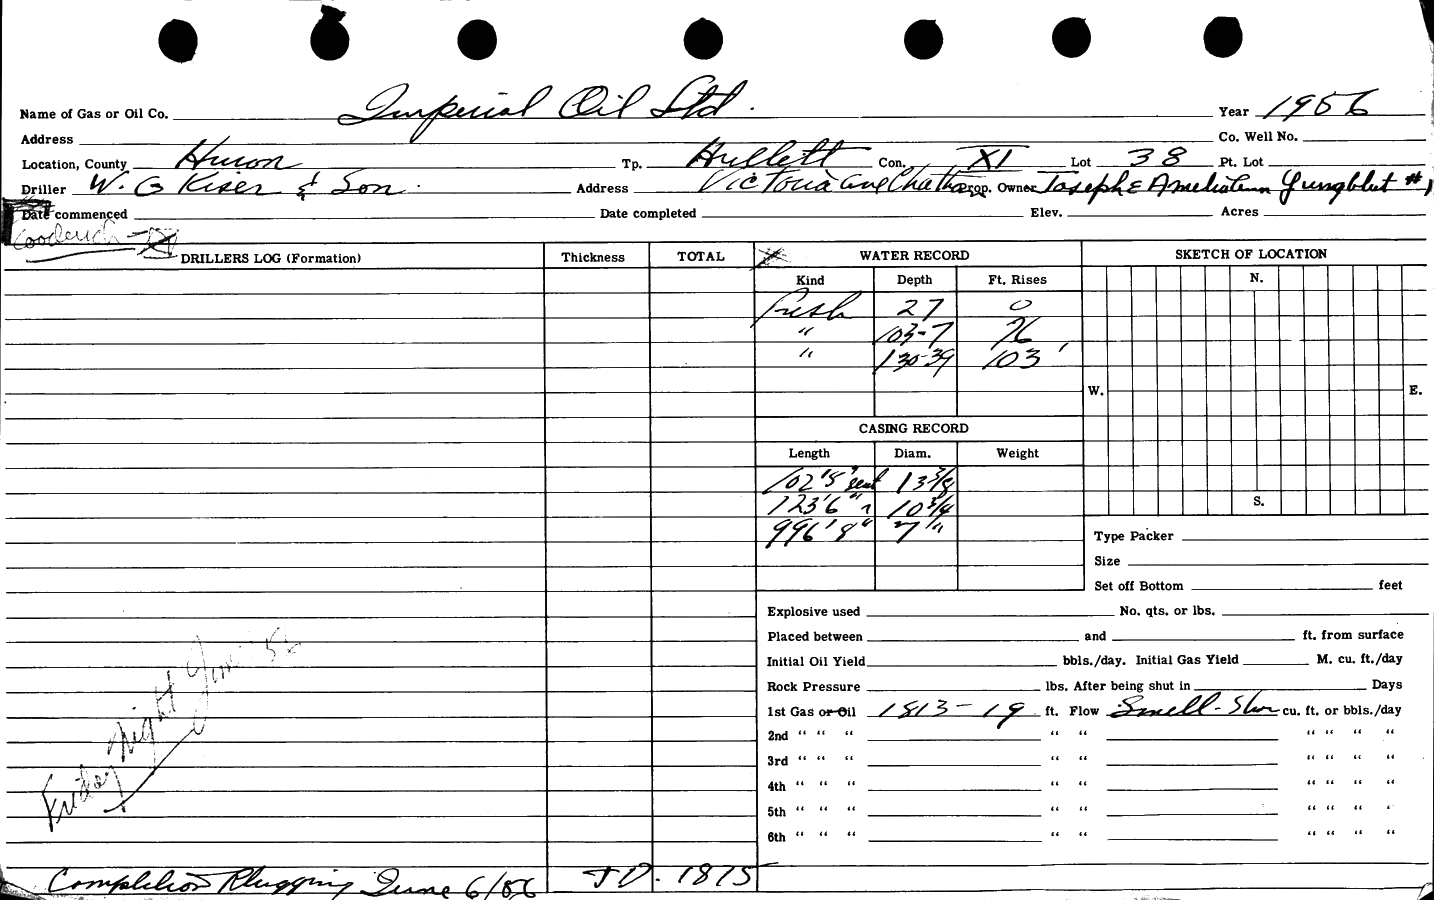 Name of Gas or Oil Co. Imperial Oil Ltd. Year 1956
Address Co. Well No.
Location, County Huron Tp. Hullett Con. XI Lot 38 Pt. Lot
Driller W. G Kiser & Son. Address Victoria ave Chatham Prop. Owner Joseph & Yungblut #1
Date commenced Date completed Elev. Acres
Goderich
DRILLERS LOG (Formation) Thickness TOTAL WATER RECORD SKETCH OF LOCATION
Kind Depth Ft. Rises N.
fresh 27 0
" 103-7 76
" 130-39 103'
W. E.
CASING RECORD
Length Diam. Weight
102'5" 13 3/8
123'6" " 10 3/4 S.
996'8" 7"
Type Packer
Size
Set off Bottom feet
Explosive used No. qts. or lbs.
Placed between and ft. from surface
Initial Oil Yield bbls./day. Initial Gas Yield M. cu. ft./day
Rock Pressure lbs. After being shut in Days
1st Gas or Oil 1813-19 ft. Flow Small-Show cu. ft. or bbls./day
2nd " " " " " " " " "
3rd " " " " " " " " "
4th " " " " " " " " "
5th " " " " " " " " "
6th " " " " " " " " "
Friday night June 56
Completion Plugging June 6/56 T.D. 1875